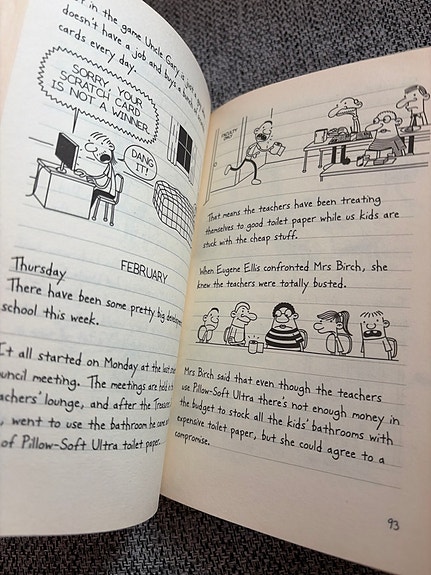 in the game Uncle Gary is just
doesn't have a job and buys a bunch of
cards every day.
SORRY, YOUR
SCRATCH CARD
IS NOT A WINNER.
DANG
IT!
FEBRUARY
Thursday
There have been some pretty big
school this week.
It all started on Monday at the last
council meeting. The meetings are held
teachers' lounge, and after the
went to use the bathroom he
of Pillow-Soft Ultra toilet paper.
FACULTY
ONLY
That means the teachers have been treating
themselves to good toilet paper while us kids are
stuck with the cheap stuff.
When Eugene Ellis confronted Mrs Birch, she
knew the teachers were totally busted.
Mrs Birch said that even though the teachers
use Pillow-Soft Ultra there's not enough money in
the budget to stock all the kids' bathrooms with
expensive toilet paper, but she could agree to a
compromise.
93